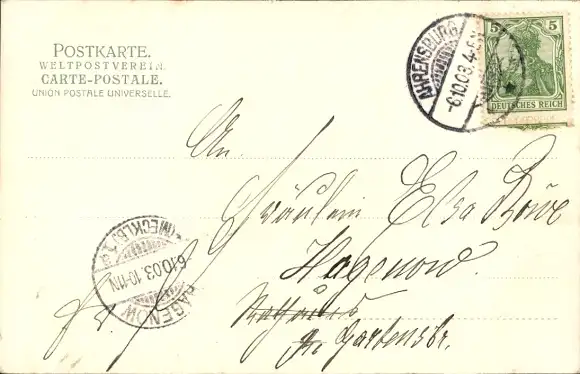 POSTKARTE.
WELTPOSTVEREIN.
CARTE-POSTALE.
UNION POSTALE UNIVERSELLE.
AHRENSBURG
-6.10.03. 4-5N
5 5
DEUTSCHES REICH
An
Fräulein Elsa Böwe
Hagenow.
Rathaus
Gr. Gartenstr.
HAGENOW
(MECKLB.)
6.10.03. 10-11N